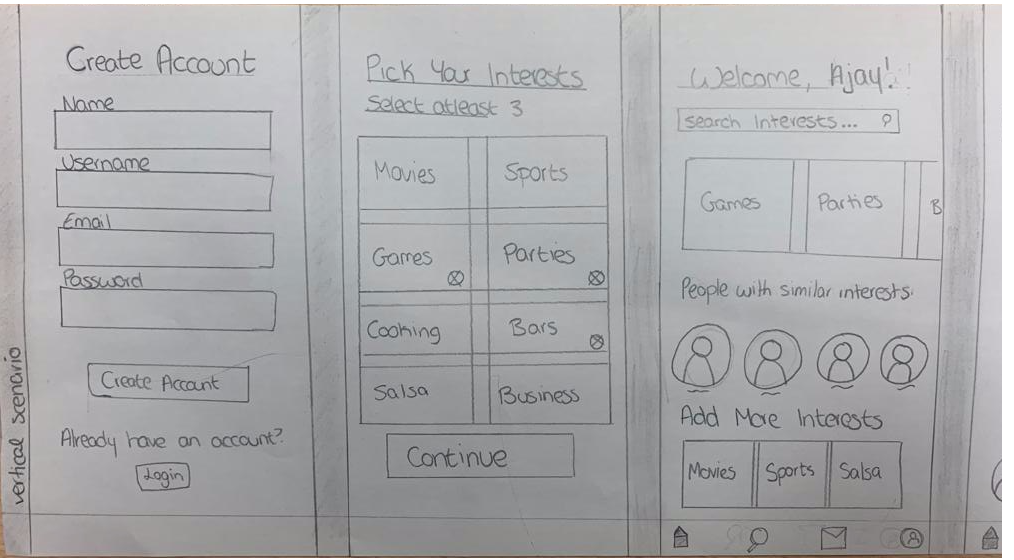 vertical scenario
Create Account
Name
Username
Email
Password
Create Account
Already have an account?
Login
Pick Your Interests
Select atleast 3
Movies
Sports
Games
Parties
Cooking
Bars
Salsa
Business
Continue
Welcome, Ajay!
search Interests...
Games
Parties
B
People with similar interests.
Add More Interests
Movies
Sports
Salsa